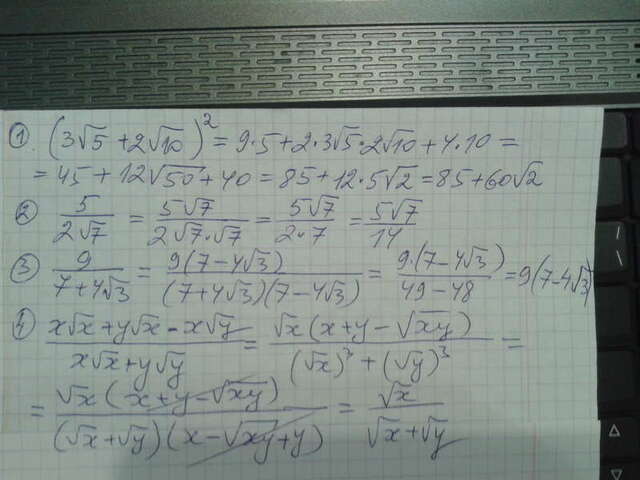 ① (3√5 + 2√10)² = 9·5 + 2·3√5·2√10 + 4·10 =
= 45 + 12√50 + 40 = 85 + 12·5√2 = 85 + 60√2
② 5/(2√7) = 5√7/(2√7·√7) = 5√7/(2·7) = 5√7/14
③ 9/(7+4√3) = 9(7-4√3)/((7+4√3)(7-4√3)) = 9·(7-4√3)/(49-48) = 9(7-4√3)
④ (x√x+y√x-x√y)/(x√x+y√y) = √x(x+y-√xy)/((√x)³+(√y)³) =
= √x(x+y-√xy)/((√x+√y)(x-√xy+y)) = √x/(√x+√y)